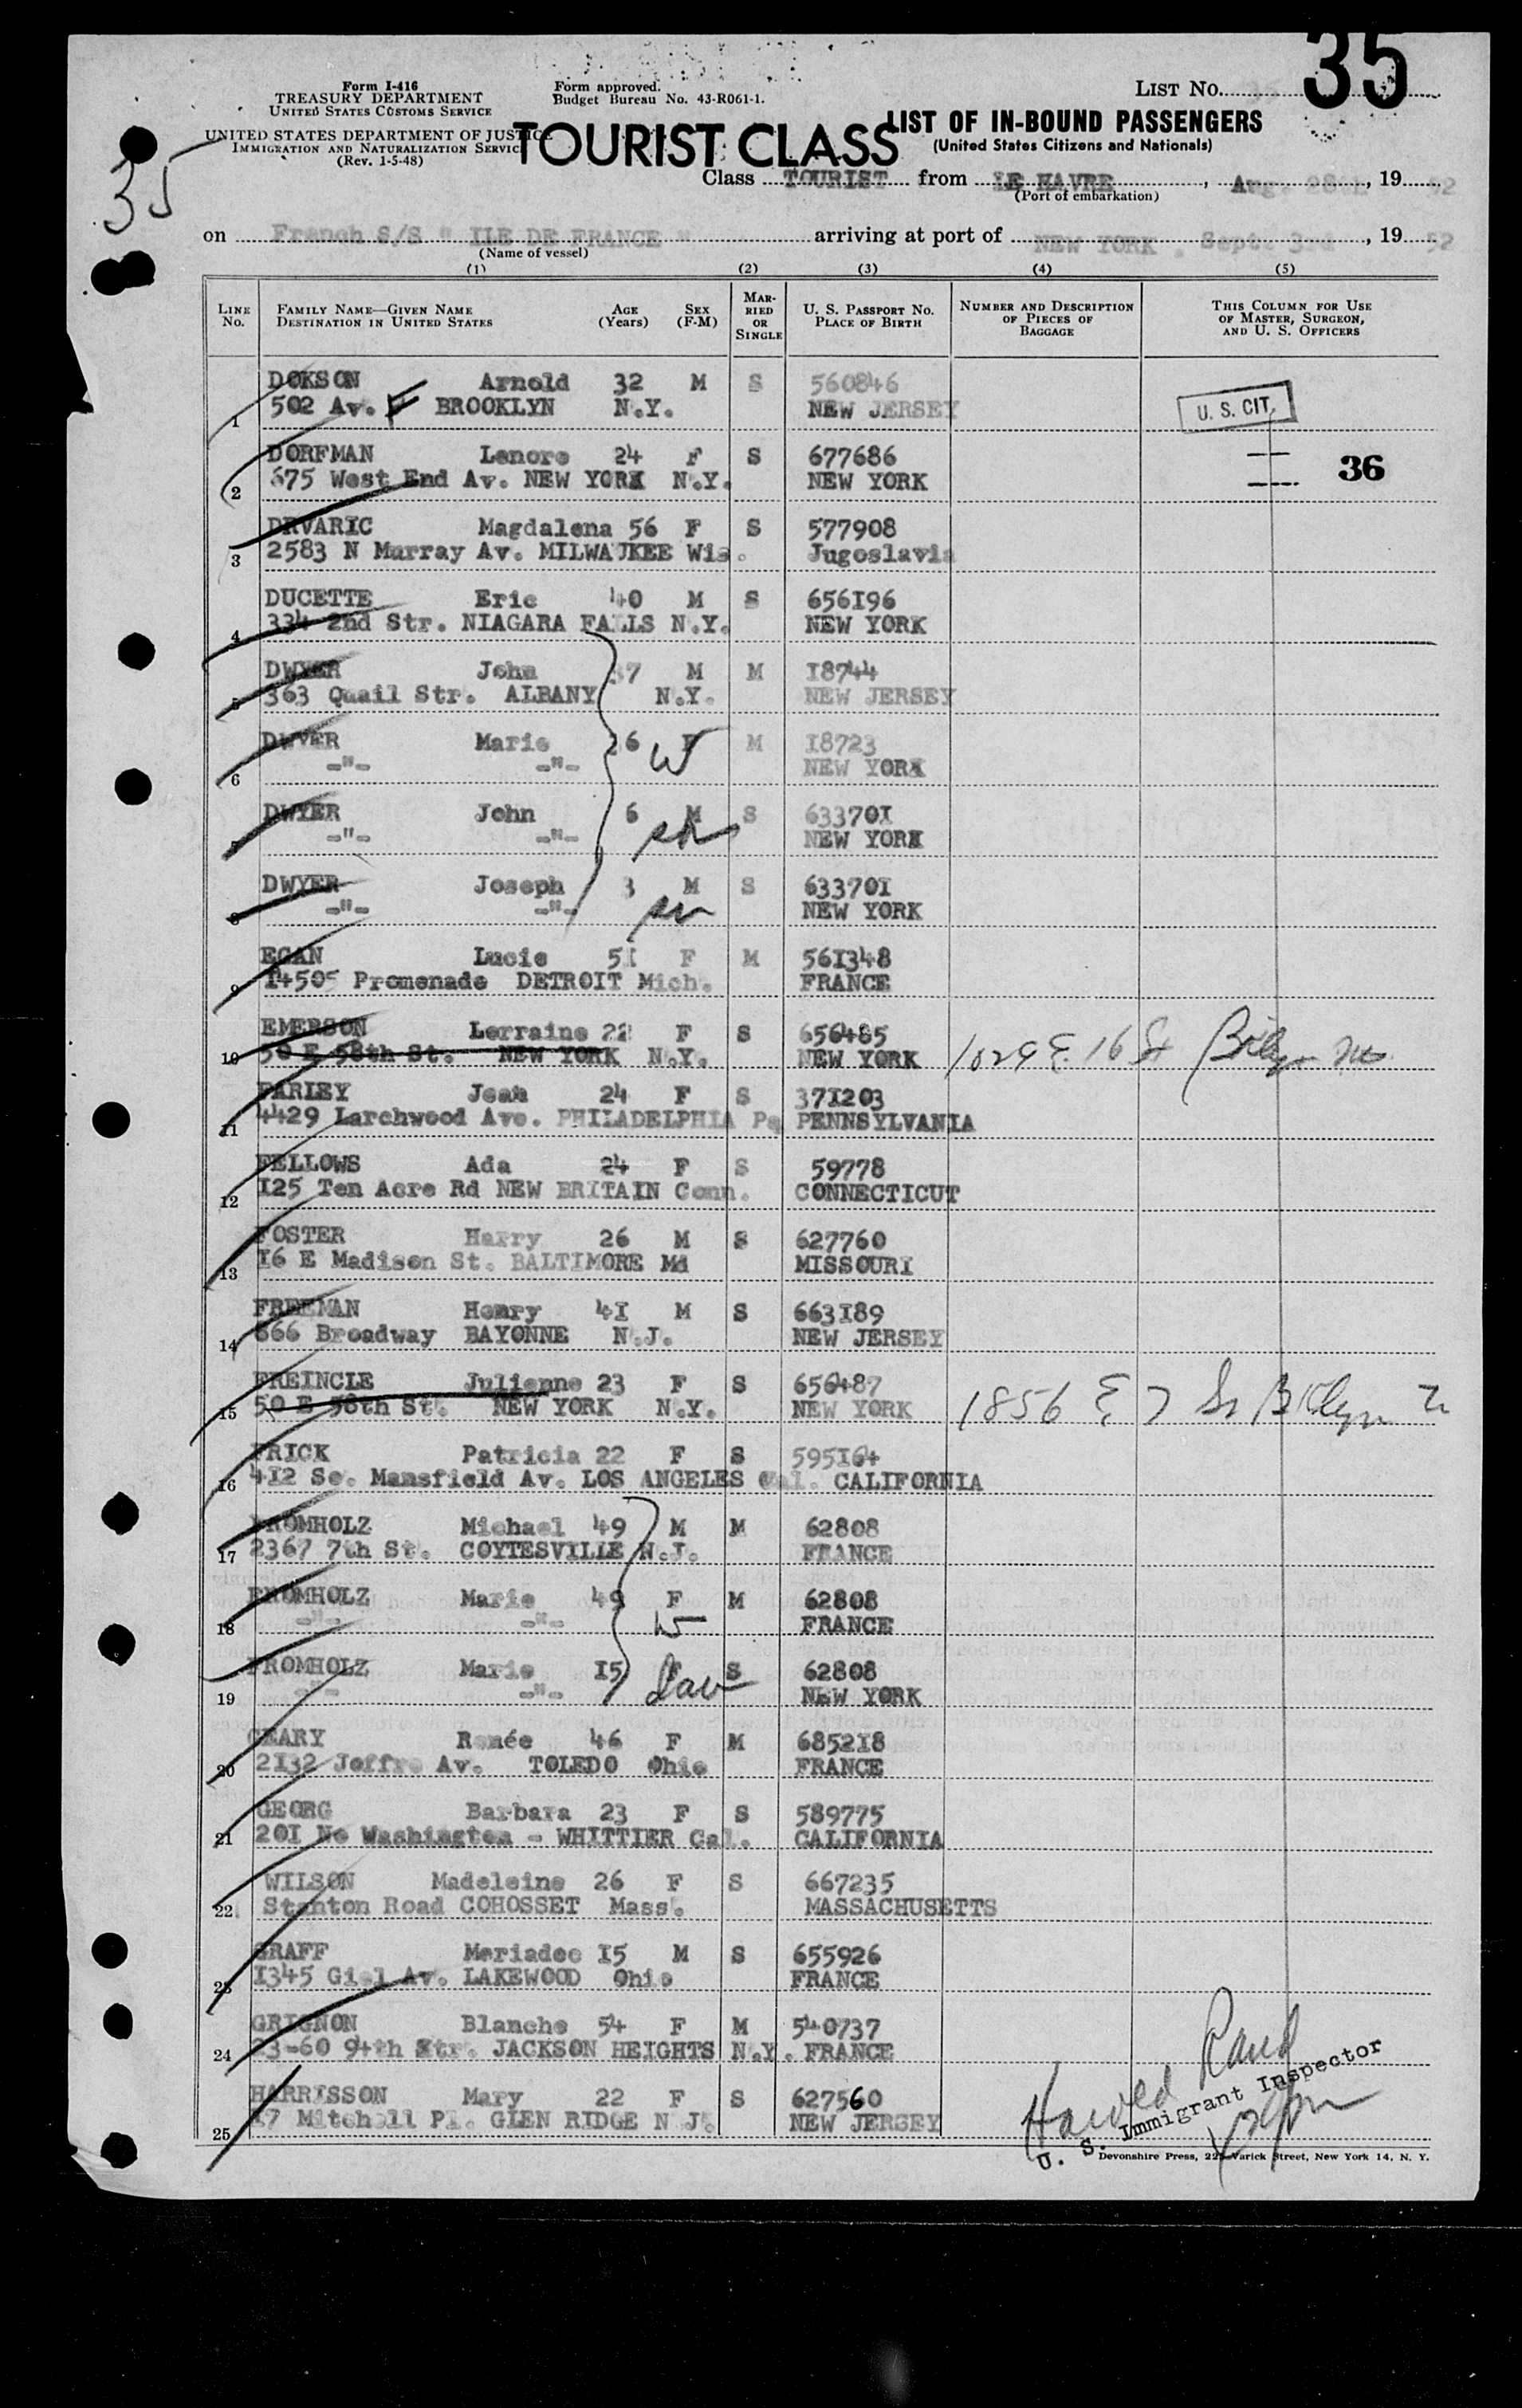 35
Form I-416
TREASURY DEPARTMENT
UNITED STATES CUSTOMS SERVICE
UNITED STATES DEPARTMENT OF JUSTICE
IMMIGRATION AND NATURALIZATION SERVICE
(Rev. 1-5-48)
Form approved.
Budget Bureau No. 43-R061-1.
LIST No.
35
TOURIST CLASS
LIST OF IN-BOUND PASSENGERS
(United States Citizens and Nationals)
Class TOURIST from LE HAVRE, Aug. 28th, 1952
(Port of embarkation)
on French S/S " ILE DE FRANCE " arriving at port of NEW YORK . Sept. 3rd, 1952
(Name of vessel)
(1) (2) (3) (4) (5)
LINE No. FAMILY NAME—GIVEN NAME DESTINATION IN UNITED STATES AGE (Years) SEX (F-M) MARRIED OR SINGLE U. S. PASSPORT No. PLACE OF BIRTH NUMBER AND DESCRIPTION OF PIECES OF BAGGAGE THIS COLUMN FOR USE OF MASTER, SURGEON, AND U. S. OFFICERS
DOKSON Arnold 32 M S 560846
1 502 Av. F BROOKLYN N.Y. NEW JERSEY U. S. CIT.
DORFMAN Lenore 24 F S 677686 36
2 675 West End Av. NEW YORK N.Y. NEW YORK
DRVARIC Magdalena 56 F S 577908
3 2583 N Murray Av. MILWAUKEE Wis. Jugoslavia
DUCETTE Eric 40 M S 656196
4 334 2nd Str. NIAGARA FALLS N.Y. NEW YORK
DWYER John 37 M M 18744
5 363 Quail Str. ALBANY N.Y. NEW JERSEY
DWYER Marie 26 F M 18723
6 -"- -"- W NEW YORK
DWYER John 6 M S 633701
7 -"- -"- son NEW YORK
DWYER Joseph 3 M S 633701
8 -"- -"- son NEW YORK
EGAN Lucie 51 F M 561348
9 14505 Promenade DETROIT Mich. FRANCE
EMERSON Lorraine 22 F S 656485
10 50 E 58th St. NEW YORK N.Y. NEW YORK 1029 E. 16 St Bklyn
FARLEY Jean 24 F S 371203
11 4429 Larchwood Ave. PHILADELPHIA Pa PENNSYLVANIA
FELLOWS Ada 24 F S 59778
12 125 Ten Acre Rd NEW BRITAIN Conn. CONNECTICUT
FOSTER Harry 26 M S 627760
13 16 E Madison St. BALTIMORE Md MISSOURI
FREEMAN Henry 41 M S 663189
14 666 Broadway BAYONNE N.J. NEW JERSEY
FREINCLE Julienne 23 F S 656487
15 50 E 58th St. NEW YORK N.Y. NEW YORK 1856 E 7 St Bklyn
FRICK Patricia 22 F S 595164
16 412 So. Mansfield Av. LOS ANGELES Cal. CALIFORNIA
FROMHOLZ Michael 49 M M 62808
17 2367 7th St. COYTESVILLE N.J. FRANCE
FROMHOLZ Marie 49 F M 62808
18 -"- -"- W FRANCE
FROMHOLZ Marie 15 F S 62808
19 -"- -"- dau NEW YORK
GEARY Renée 46 F M 685218
20 2132 Joffre Av. TOLEDO Ohio FRANCE
GEORG Barbara 23 F S 589775
21 201 No Washington - WHITTIER Cal. CALIFORNIA
WILSON Madeleine 26 F S 667235
22 Stanton Road COHOSSET Mass. MASSACHUSETTS
GRAFF Meriadec 15 M S 655926
23 1345 Giel Av. LAKEWOOD Ohio FRANCE
GRIGNON Blanche 54 F M 540737
24 23-60 94th Str. JACKSON HEIGHTS N.Y. FRANCE
HARRISSON Mary 22 F S 627560
25 17 Mitchell Pl. GLEN RIDGE N J. NEW JERSEY
Harold Rand
U. S. Immigrant Inspector
Devonshire Press, 225 Varick Street, New York 14, N. Y.